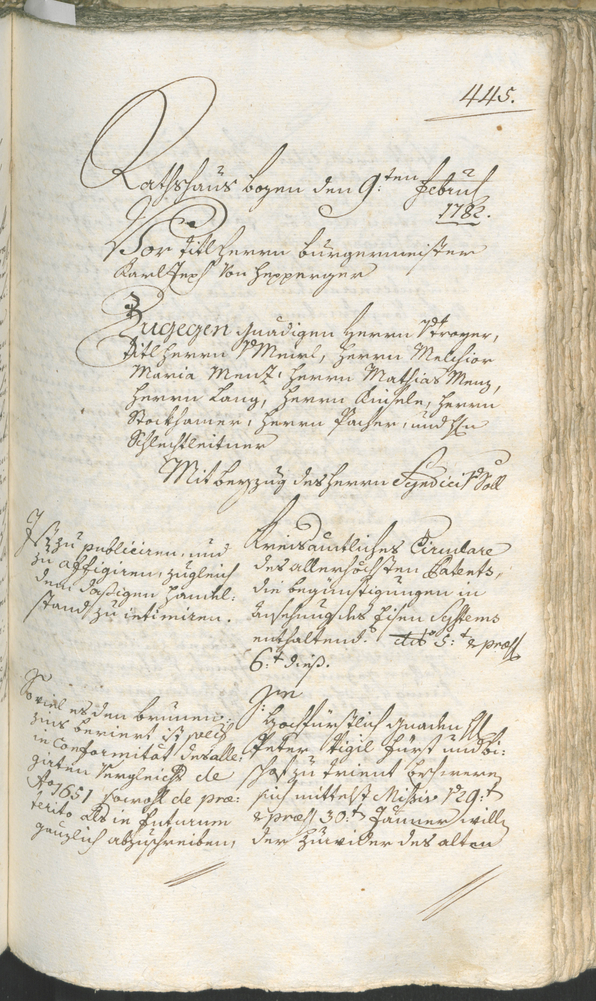 445.
Rathshaus bozen den 9:ten Febru:
1782.
Vor Titl Herrn burgermeister
Karl Joph von Hepperger
Zugegen gnädigen Herrn v: Troyer,
Titl Herrn v: Meirl, Herrn Melchior
Maria Menz: Herrn Mathias Menz,
Herrn Lang, Herrn Kinsele, Herrn
Stockhamer, Herrn Pacher, und Hn
Schlechtleitner
Mit beyzug des Herrn Syndici v: Söll
Ist zu publiciren, und
zu affigiren, zugleich
dem dasigen Handel:
stand zu intimiren.
Kreisamtliches Circulare
des allerhöchsten Patents,
die begünstigungen in
Ansehung des Eisen Systems
enthaltend. ddo 5:t & præs:
6:t dieß.
So viel es den brunen:
zins beriert ist sich
in Conformität des alle:
girten Vergleichs de
Ao 1651 sowohl de præ:
terito als in futurum
gänzlich abzuschreiben,
Ihro
Hochfürstlich Gnaden Hl
Peter Vigil Fürst und bi:
schof zu Trient beschweren
sich mittelst Missiv v: 29:t
& præs: 30:t Jänner will
der zuwider des alten